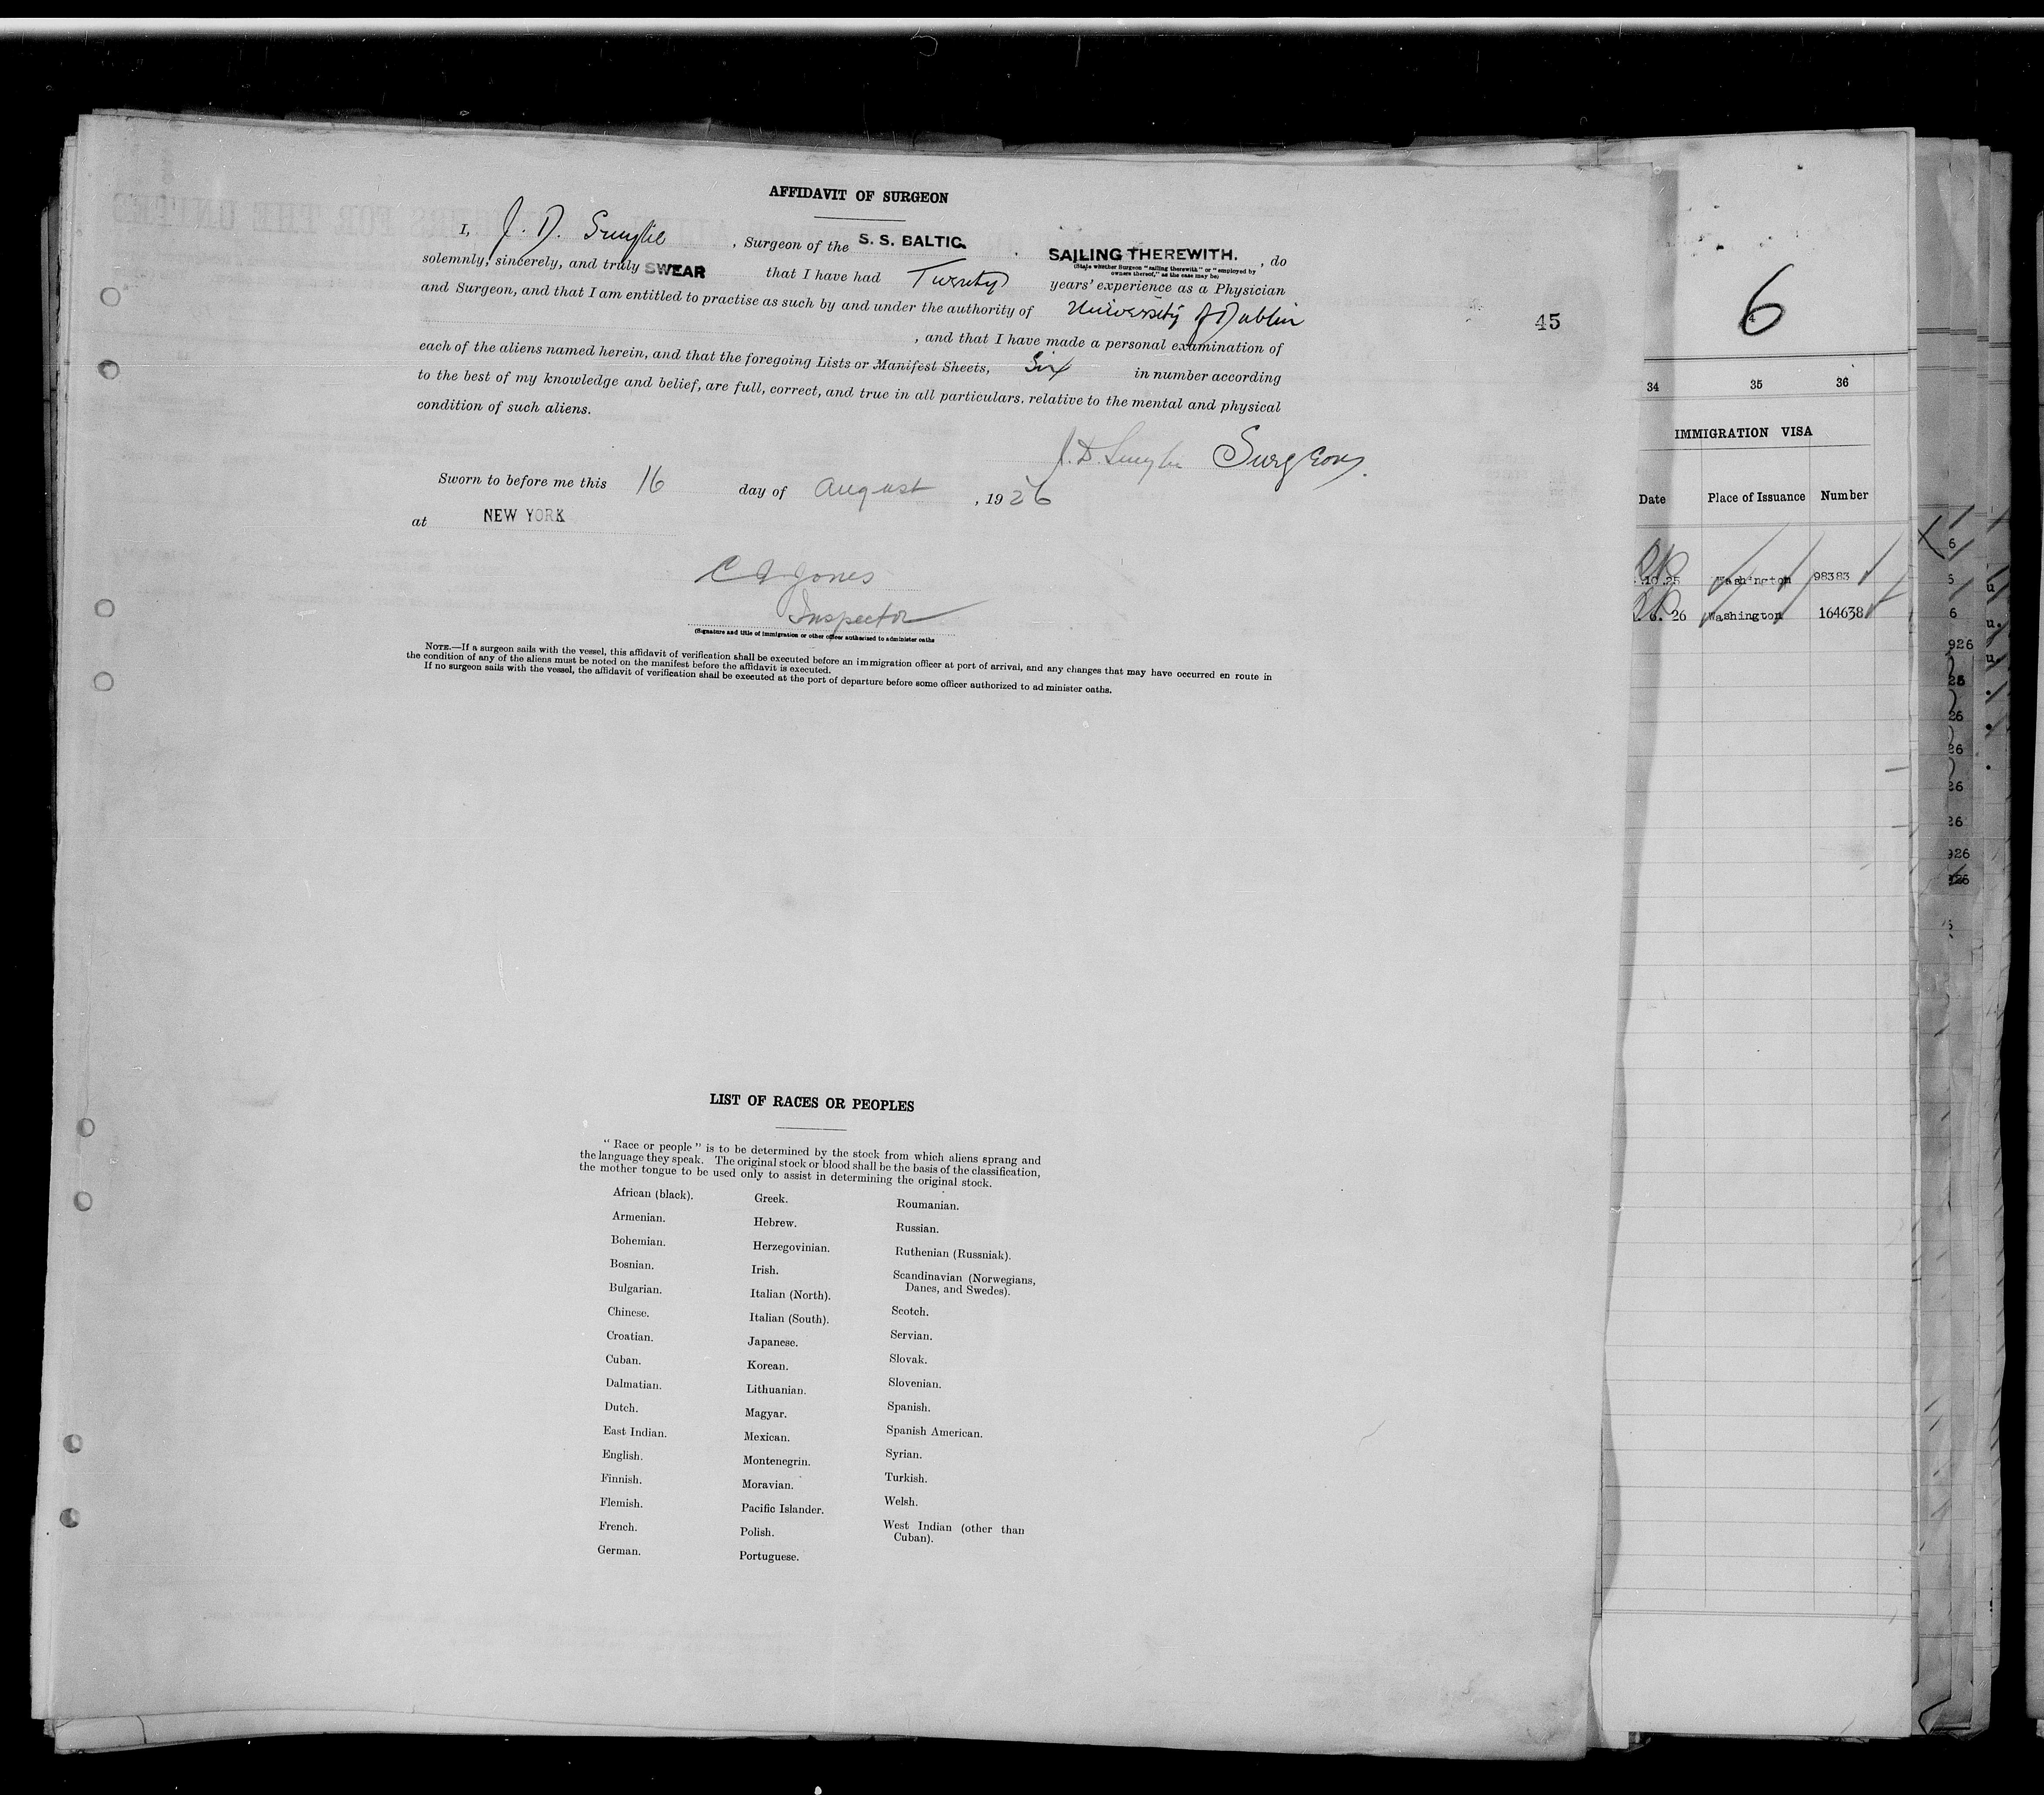 AFFIDAVIT OF SURGEON
I, J. D. Smylie , Surgeon of the S. S. BALTIC. SAILING THEREWITH. , do
(State whether Surgeon "sailing therewith" or "employed by
owners thereof," as the case may be)
solemnly, sincerely, and truly SWEAR that I have had Twenty years' experience as a Physician
and Surgeon, and that I am entitled to practise as such by and under the authority of University of Dublin
, and that I have made a personal examination of
each of the aliens named herein, and that the foregoing Lists or Manifest Sheets, Six in number according
to the best of my knowledge and belief, are full, correct, and true in all particulars. relative to the mental and physical
condition of such aliens.
J. D. Smylie Surgeon.
Sworn to before me this 16 day of August , 1926
at NEW YORK
Jones
Inspector
(Signature and title of immigration or other officer authorised to administer oaths
NOTE.—If a surgeon sails with the vessel, this affidavit of verification shall be executed before an immigration officer at port of arrival, and any changes that may have occurred en route in
the condition of any of the aliens must be noted on the manifest before the affidavit is executed.
If no surgeon sails with the vessel, the affidavit of verification shall be executed at the port of departure before some officer authorized to ad minister oaths.
LIST OF RACES OR PEOPLES
"Race or people" is to be determined by the stock from which aliens sprang and
the language they speak. The original stock or blood shall be the basis of the classification,
the mother tongue to be used only to assist in determining the original stock.
African (black).
Armenian.
Bohemian.
Bosnian.
Bulgarian.
Chinese.
Croatian.
Cuban.
Dalmatian.
Dutch.
East Indian.
English.
Finnish.
Flemish.
French.
German.
Greek.
Hebrew.
Herzegovinian.
Irish.
Italian (North).
Italian (South).
Japanese.
Korean.
Lithuanian.
Magyar.
Mexican.
Montenegrin.
Moravian.
Pacific Islander.
Polish.
Portuguese.
Roumanian.
Russian.
Ruthenian (Russniak).
Scandinavian (Norwegians,
Danes, and Swedes).
Scotch.
Servian.
Slovak.
Slovenian.
Spanish.
Spanish American.
Syrian.
Turkish.
Welsh.
West Indian (other than
Cuban).
45
6
34 35 36
IMMIGRATION VISA
Date Place of Issuance Number
10.25 Washington 98383
6. 26 Washington 164638
6
5
6
926
26
26
26
26
26
926
926